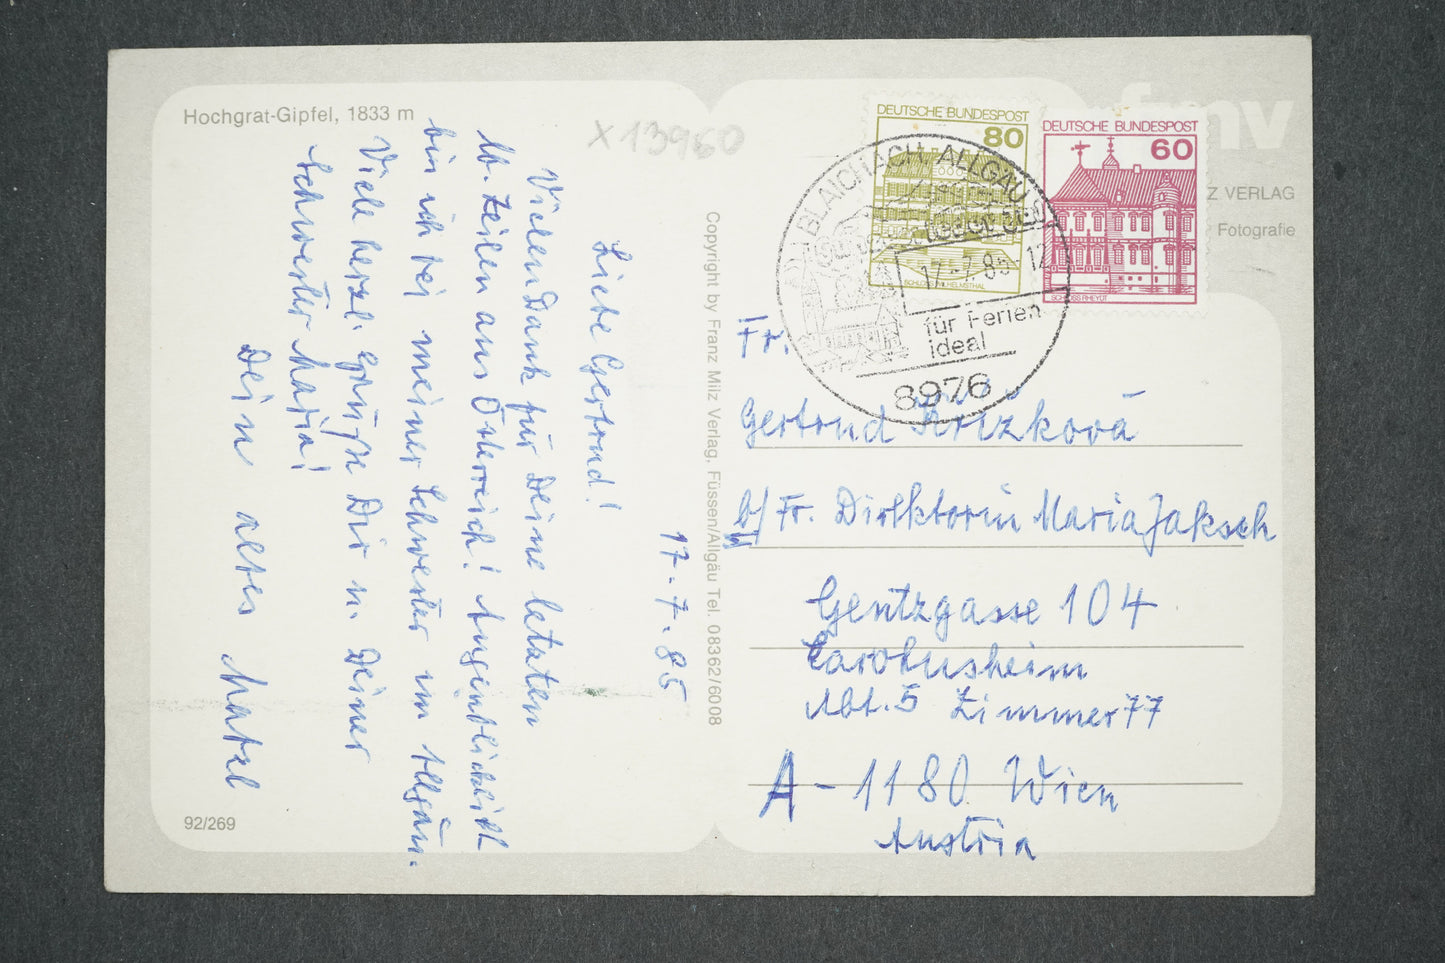 Hochgrat-Gipfel, 1833 m
X 13960
17.-7.-85
Liebe Gertrud!
Vielen Dank für Deine letzten
lb. Zeilen aus Österreich! Augenblicklich
bin ich bei meiner Schwester im Allgäu.
Viele herzl. Grüße Dir u. Deiner
Schwester Maria!
Dein altes
92/269
Copyright by Franz Milz Verlag, Füssen/Allgäu Tel. 08362/6008
fmv
Z VERLAG
Fotografie
DEUTSCHE BUNDESPOST
80
SCHLOSS WILHELMSTHAL
DEUTSCHE BUNDESPOST
60
SCHLOSS RHEYDT
BLAICHACH, ALLGÄU
17.-7.85-12
für Ferien
ideal
8976
Fr.
Gertrud Křížková
b/ Fr. Direktorin Maria Jaksch
Gentzgasse 104
Carolusheim
Abt. 5 Zimmer 77
A-1180 Wien
Austria